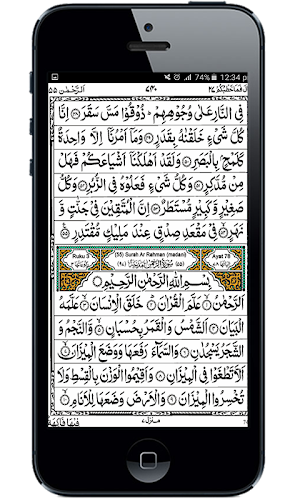 74% 12:34 pm
الرَّحْمٰن ٥٥ ٤٣٠ قال فما خطبكم ٢٧
فِى النَّارِ عَلٰى وُجُوْهِهِمْ ؕ ذُوْقُوْا مَسَّ سَقَرَ ﴿٤٨﴾ اِنَّا
كُلَّ شَىْءٍ خَلَقْنٰهُ بِقَدَرٍ ﴿٤٩﴾ وَمَاۤ اَمْرُنَاۤ اِلَّا وَاحِدَةٌ
كَلَمْحٍۭ بِالْبَصَرِ ﴿٥٠﴾ وَلَقَدْ اَهْلَكْنَاۤ اَشْيَاعَكُمْ فَهَلْ
مِنْ مُّدَّكِرٍ ﴿٥١﴾ وَكُلُّ شَىْءٍ فَعَلُوْهُ فِى الزُّبُرِ ﴿٥٢﴾ وَكُلُّ
صَغِيْرٍ وَّكَبِيْرٍ مُّسْتَطَرٌ ﴿٥٣﴾ اِنَّ الْمُتَّقِيْنَ فِىْ جَنّٰتٍ وَّ
نَهَرٍ ﴿٥٤﴾ فِىْ مَقْعَدِ صِدْقٍ عِنْدَ مَلِيْكٍ مُّقْتَدِرٍ ﴿٥٥﴾
Ruku 3 (55) Surah Ar Rahman (madani) Ayat 78
بِسْمِ اللّٰهِ الرَّحْمٰنِ الرَّحِيْمِ
اَلرَّحْمٰنُ ﴿١﴾ عَلَّمَ الْقُرْاٰنَ ﴿٢﴾ خَلَقَ الْاِنْسَانَ ﴿٣﴾ عَلَّمَهُ
الْبَيَانَ ﴿٤﴾ اَلشَّمْسُ وَالْقَمَرُ بِحُسْبَانٍ ﴿٥﴾ وَّالنَّجْمُ وَ
الشَّجَرُ يَسْجُدٰنِ ﴿٦﴾ وَالسَّمَآءَ رَفَعَهَا وَوَضَعَ الْمِيْزَانَ ﴿٧﴾
اَلَّا تَطْغَوْا فِى الْمِيْزَانِ ﴿٨﴾ وَاَقِيْمُوا الْوَزْنَ بِالْقِسْطِ وَلَا
تُخْسِرُوا الْمِيْزَانَ ﴿٩﴾ وَالْاَرْضَ وَضَعَهَا لِلْاَنَامِ ﴿١٠﴾
منزل ٧ فِيْهَا فَاكِهَةٌ